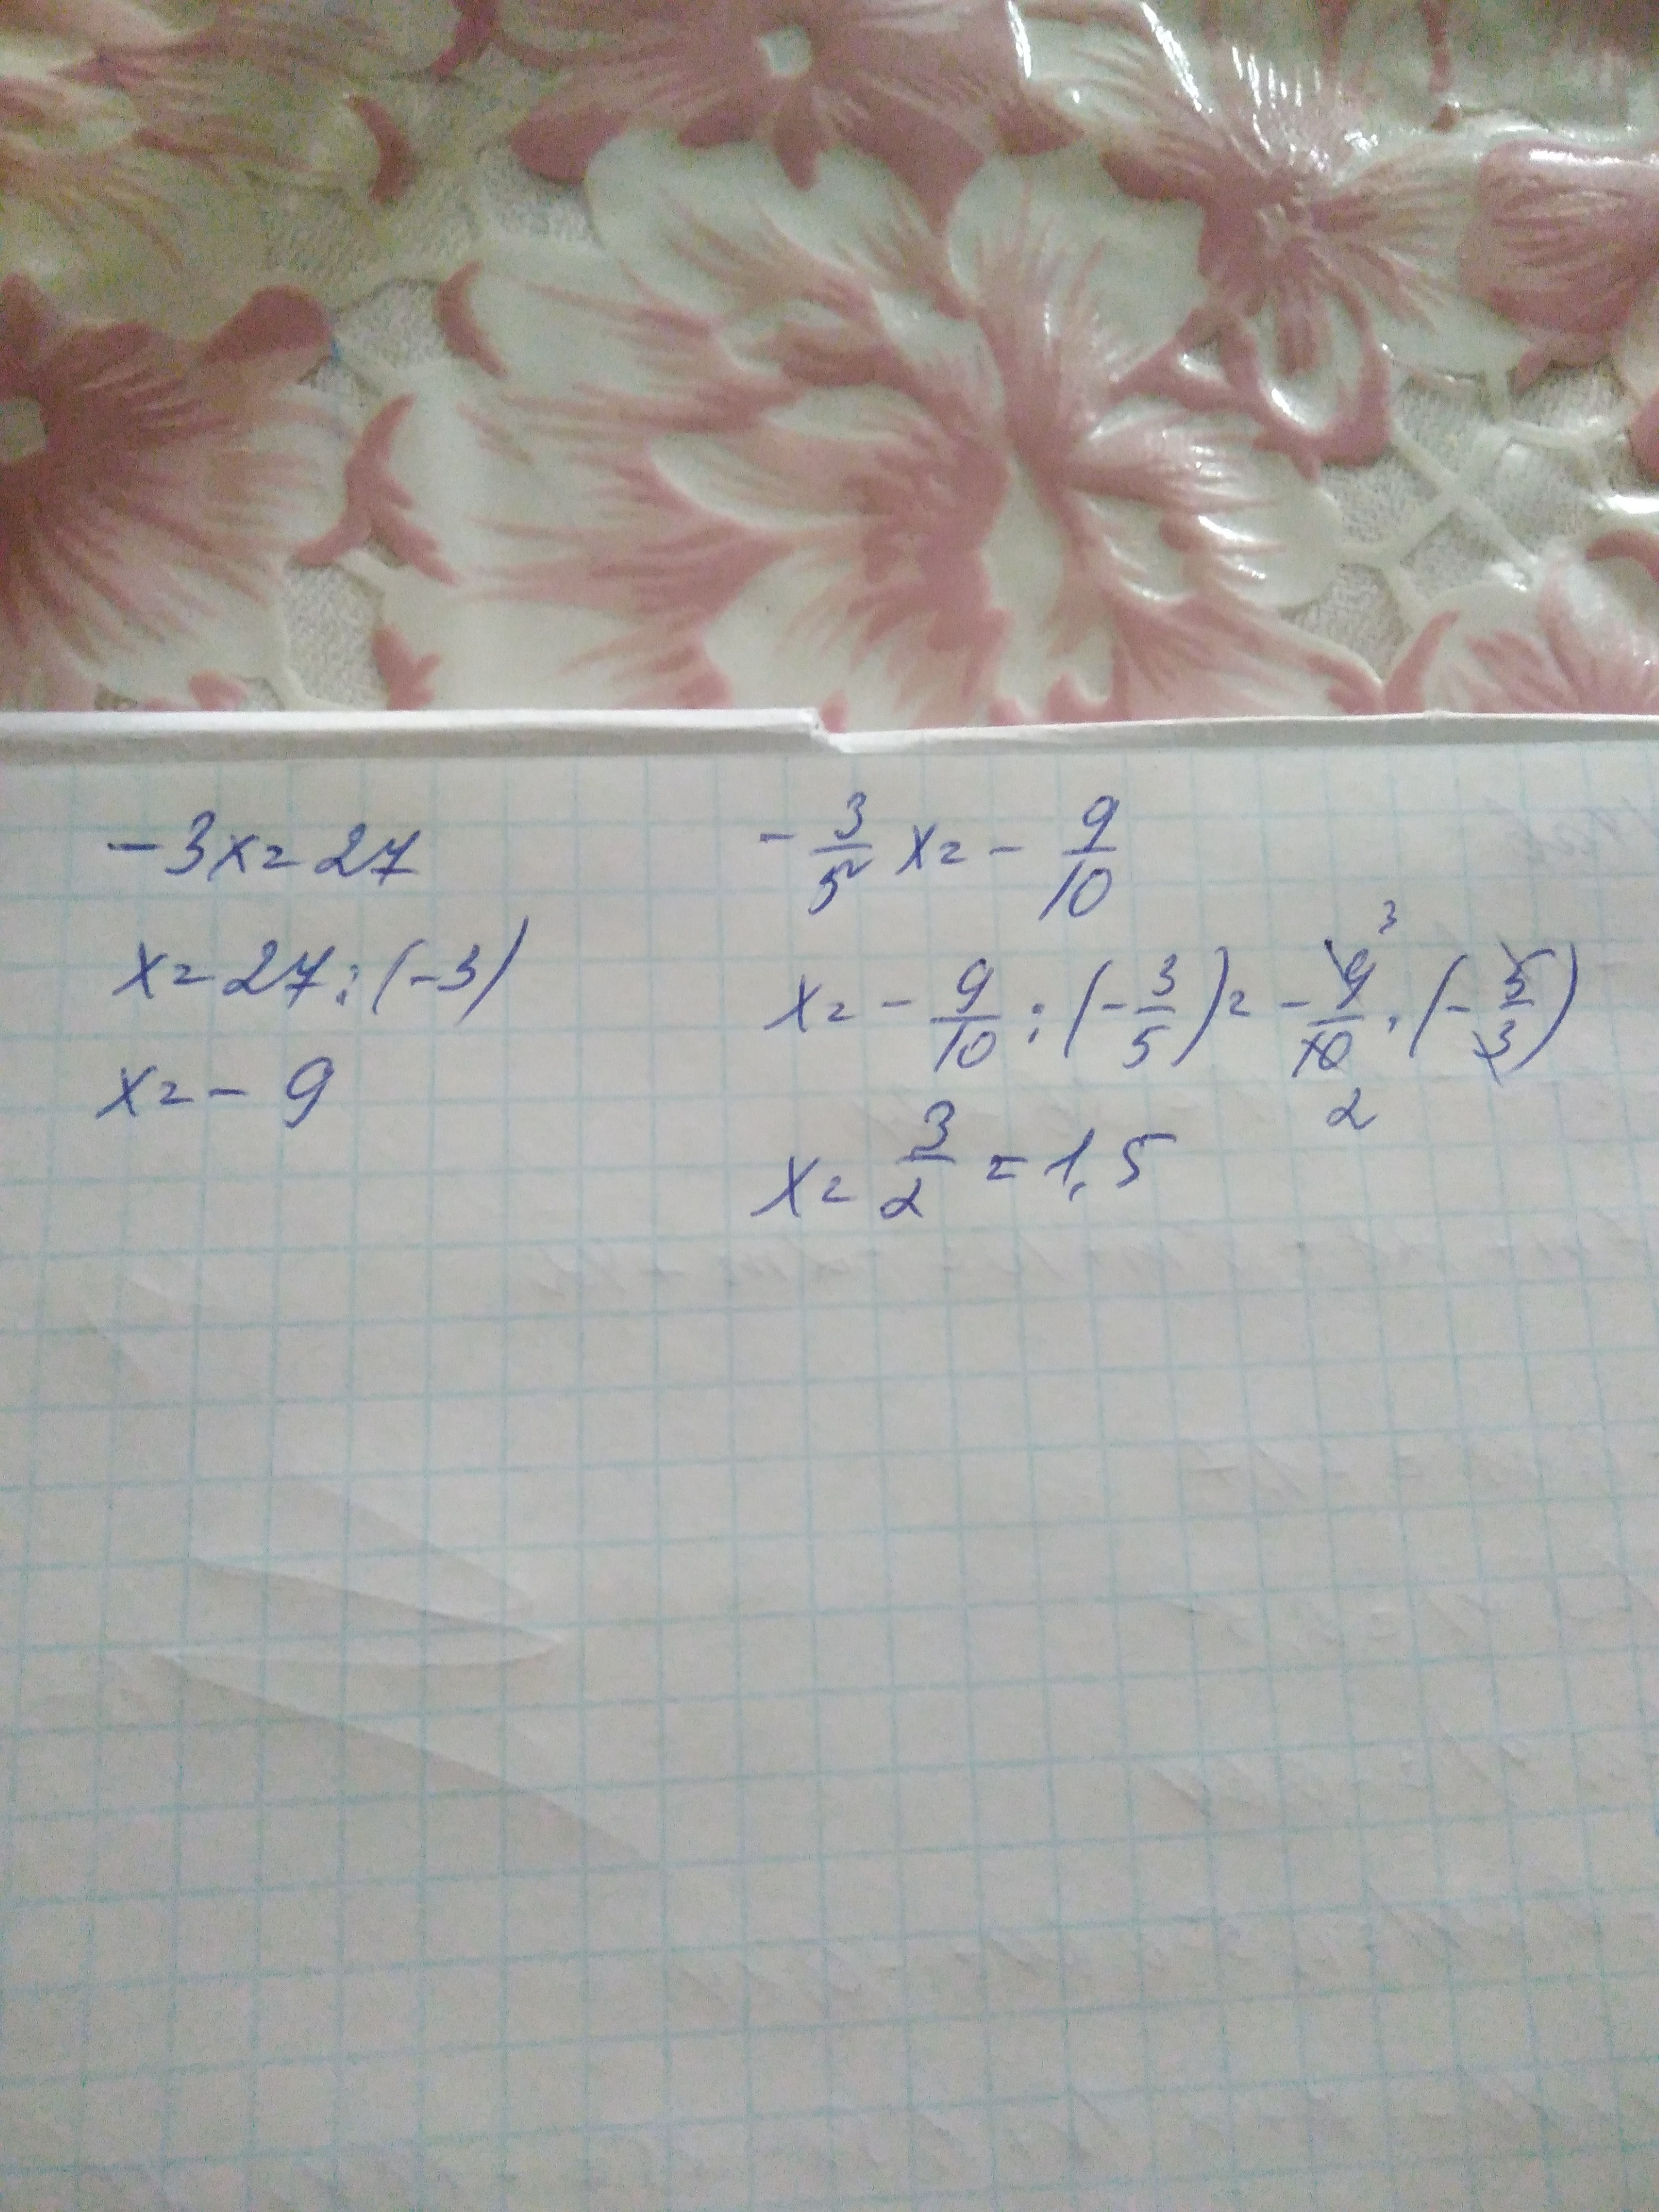 -3x = 27
x = 27 : (-3)
x = - 9
- 3/5 x = - 9/10
x = - 9/10 : (- 3/5) = - 9/10 · (- 5/3)
3
2
x = 3/2 = 1,5